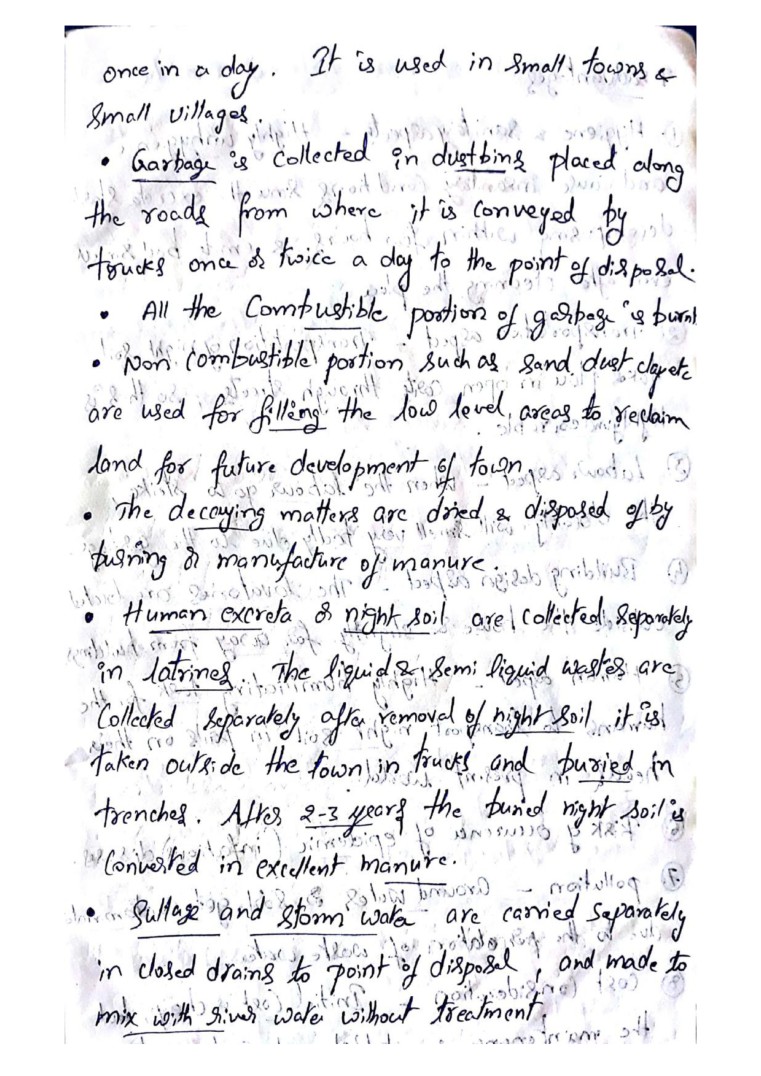 once in a day. It is used in small towns &
small villages.
• Garbage is collected in dustbins placed along
the roads from where it is conveyed by
trucks once or twice a day to the point of disposal.
• All the Combustible portion of garbage is burnt
• Non combustible portion such as sand, dust, clay etc
are used for filling the low level areas to reclaim
land for future development of town.
• The decaying matters are dried & disposed of by
burning or manufacture of manure.
• Human excreta or night soil are collected separately
in latrines. The liquid & semi liquid wastes are
Collected separately after removal of night soil it is
taken outside the town in trucks and buried in
trenches. After 2-3 years the buried night soil is
Converted in excellent manure.
• Sullage and storm water are carried separately
in closed drains to point of disposal, and made to
mix with river water without treatment.